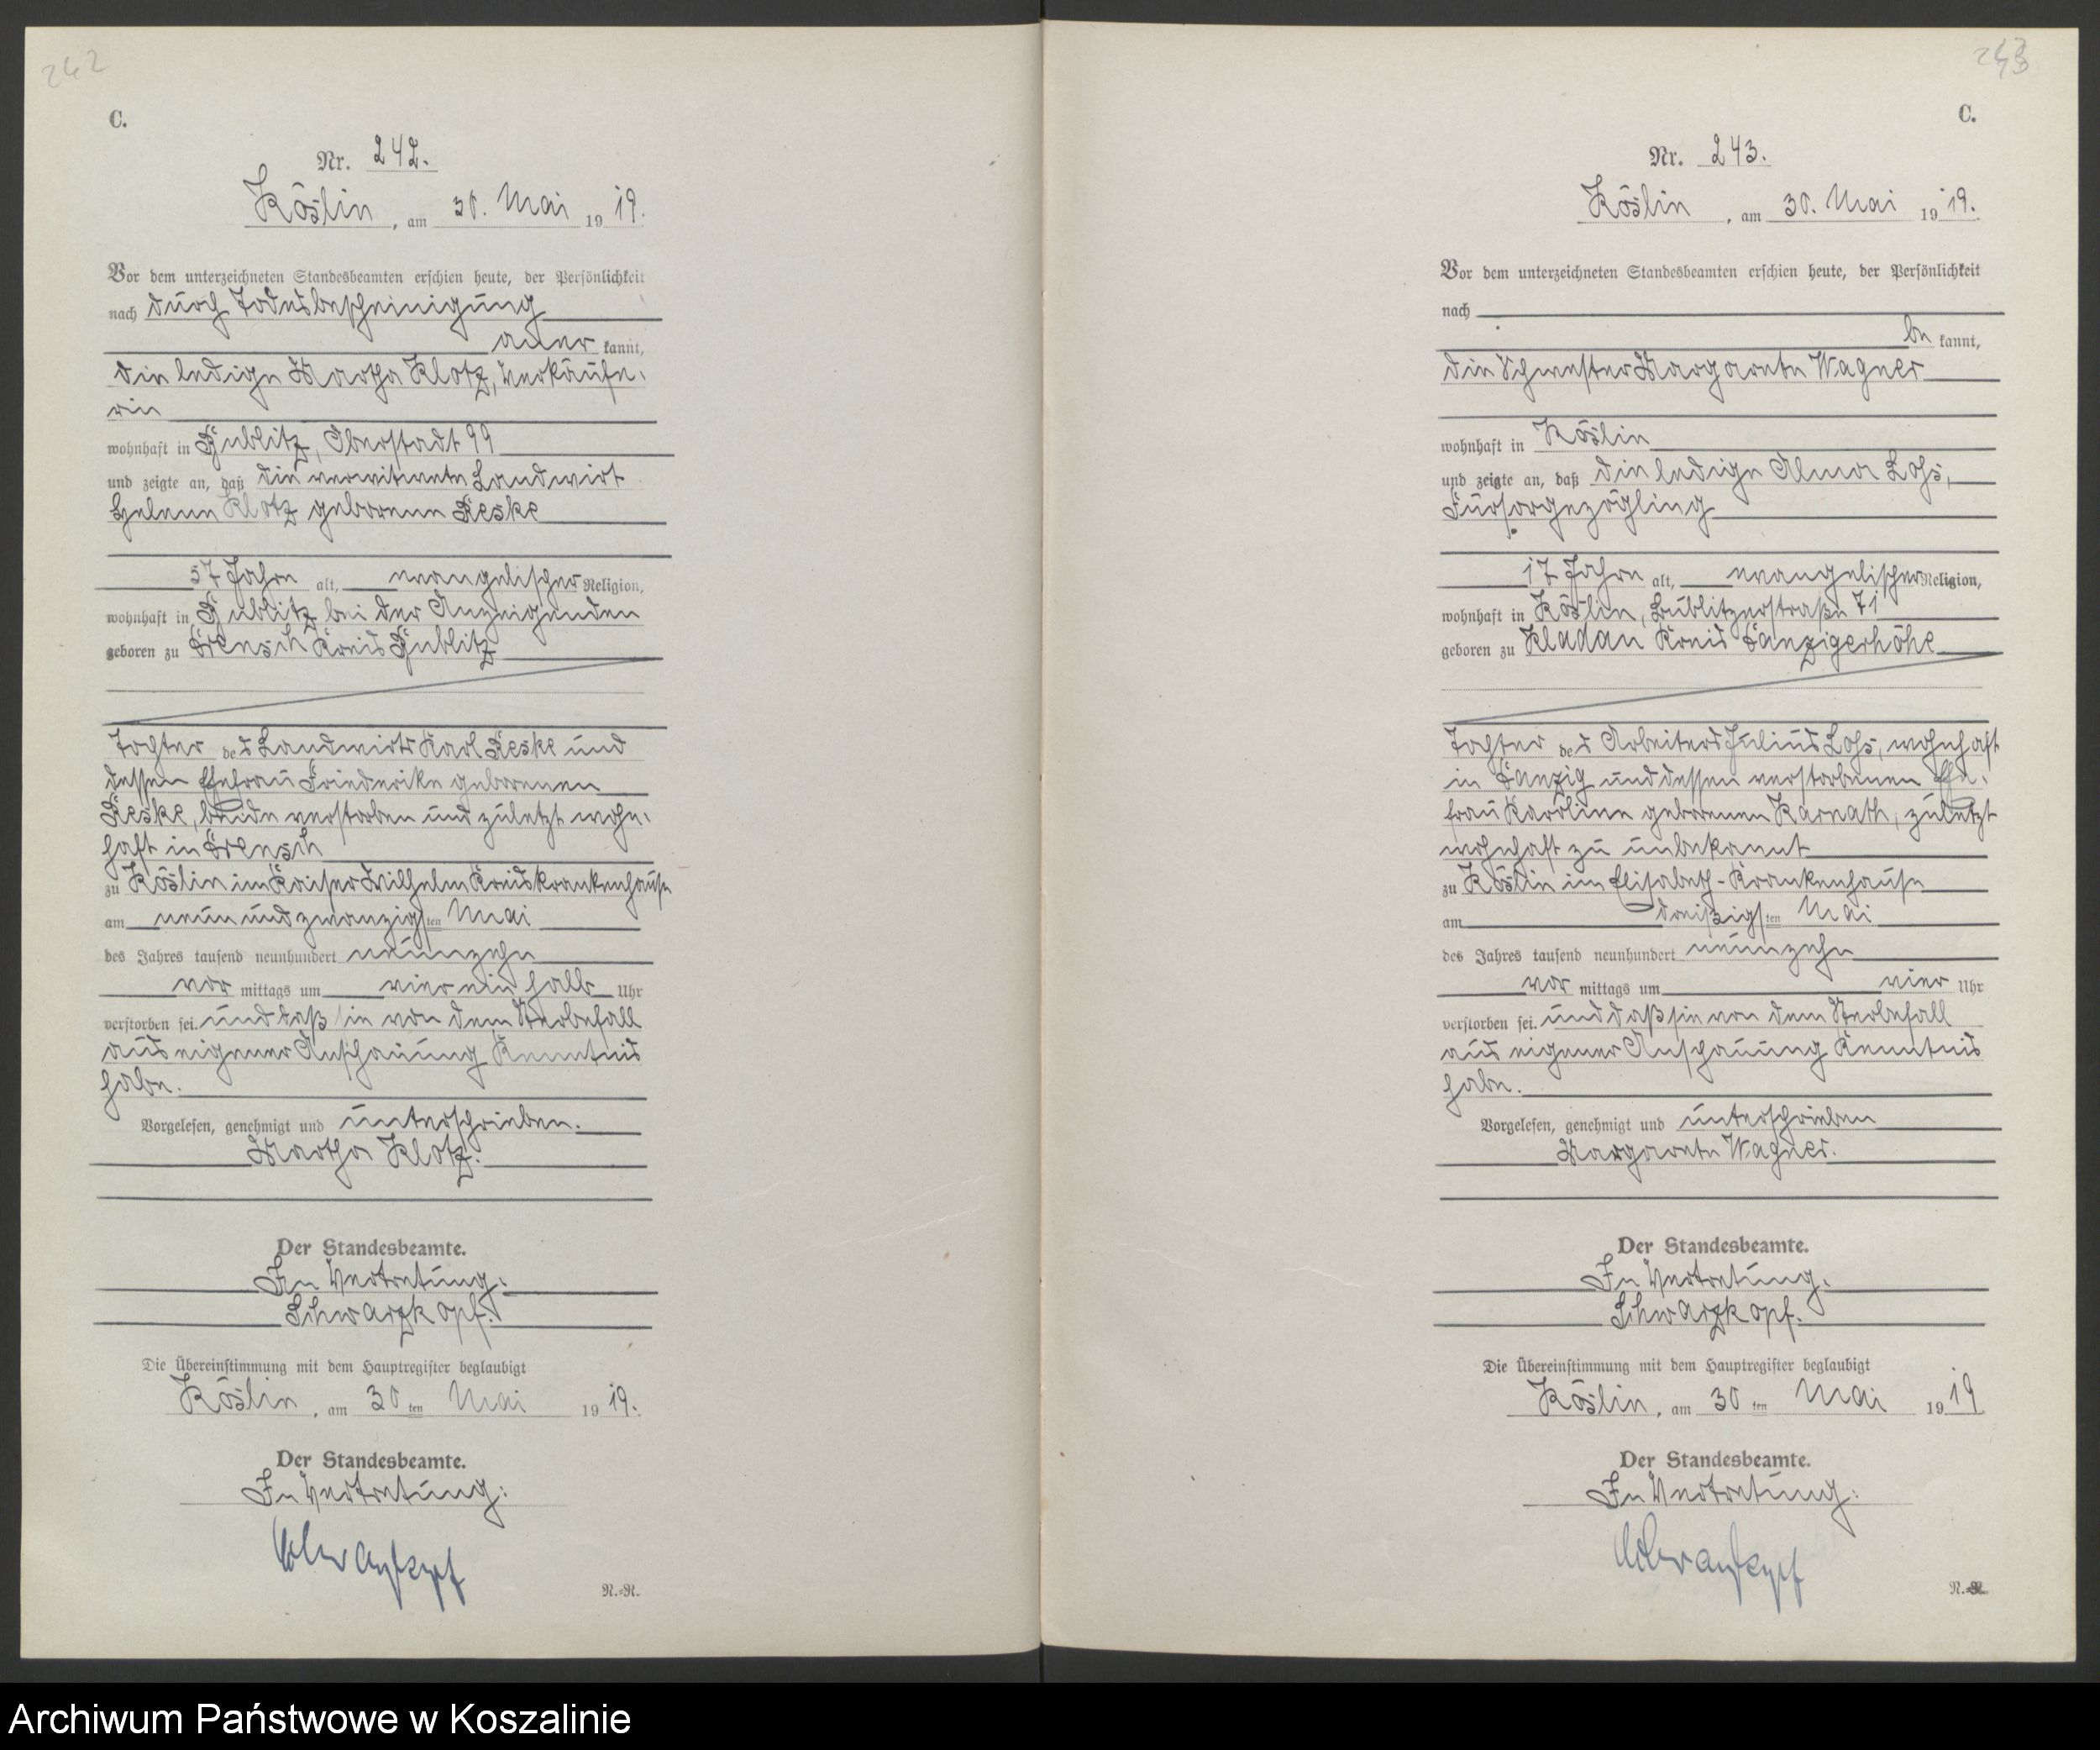 242
C.
Nr. 242.
Köslin, am 30. Mai 1919.
Vor dem unterzeichneten Standesbeamten erschien heute, der Persönlichkeit
nach durch Todesbescheinigung
aner kannt,
die ledige Martha Klotz, Verkäufe-
rin
wohnhaft in Bublitz, Oberstadt 99
und zeigte an, daß die verwitwete Landwirt
Helene Klotz geborene Reske
57 Jahre alt, evangelischer Religion,
wohnhaft in Bublitz bei der Anzeigenden
geboren zu Drensch Kreis Bublitz
Tochter des Landwirts Karl Reske und
dessen Ehefrau Friederike geborenen
Reske, beide verstorben und zuletzt wohn-
haft in Drensch
zu Köslin im Kaiser Wilhelm Kreiskrankenhause
am neunundzwanzigsten Mai
des Jahres tausend neunhundert neunzehn
vor mittags um vierein halb Uhr
verstorben sei. und daß sie von dem Sterbefall
aus eigener Anschauung Kenntnis
habe.
Vorgelesen, genehmigt und unterschrieben.
Martha Klotz.
Der Standesbeamte.
In Vertretung:
Schwarzkopf.
Die Übereinstimmung mit dem Hauptregister beglaubigt
Köslin, am 30ten Mai 1919.
Der Standesbeamte.
In Vertretung:
Schwarzkopf
R.=R.
243
C.
Nr. 243.
Köslin, am 30. Mai 1919.
Vor dem unterzeichneten Standesbeamten erschien heute, der Persönlichkeit
nach
be kannt,
die Schwester Margarete Wagner
wohnhaft in Köslin
und zeigte an, daß die ledige Alma Lohs,
Fürsorgezögling
17 Jahre alt, evangelischer Religion,
wohnhaft in Köslin, Bublitzerstraße 71
geboren zu Kladau Kreis Danzigerhöhe
Tochter des Arbeiters Julius Lohs, wohnhaft
in Danzig und dessen verstorbenen Ehe-
frau Karoline geborenen Karnath, zuletzt
wohnhaft zu unbekannt
zu Köslin im Elisabeth-Krankenhause
am dreißigsten Mai
des Jahres tausend neunhundert neunzehn
vor mittags um vier Uhr
verstorben sei. und daß sie von dem Sterbefall
aus eigener Anschauung Kenntnis
habe.
Vorgelesen, genehmigt und unterschrieben
Margarete Wagner.
Der Standesbeamte.
In Vertretung.
Schwarzkopf.
Die Übereinstimmung mit dem Hauptregister beglaubigt
Köslin, am 30ten Mai 1919
Der Standesbeamte.
In Vertretung:
Schwarzkopf
R.=R.
Archiwum Państwowe w Koszalinie